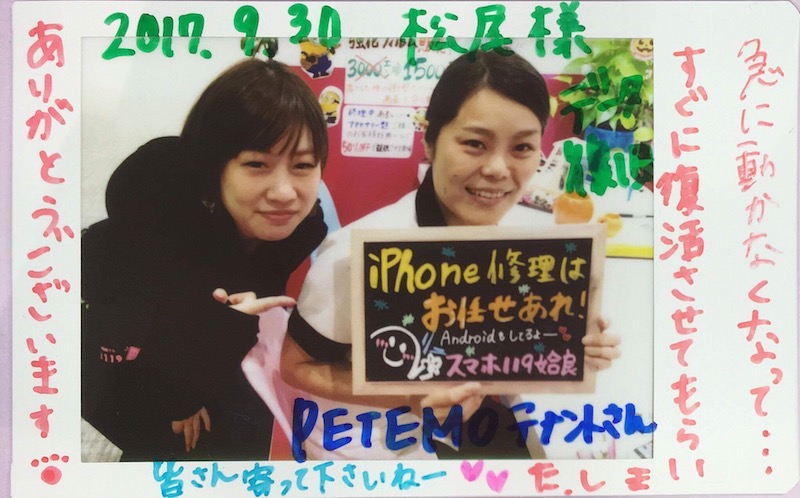 2017.9.30 松尾様
急に動かなくなって…
すぐに復活させてもらい
ました
ありがとうございます
データ
復旧
3000 1500
修理中
50%OFF
iPhone修理は
お任せあれ!
Androidもしてるよー
スマホ119姶良
119
PETEMOテナントさん
皆さん寄って下さいねー